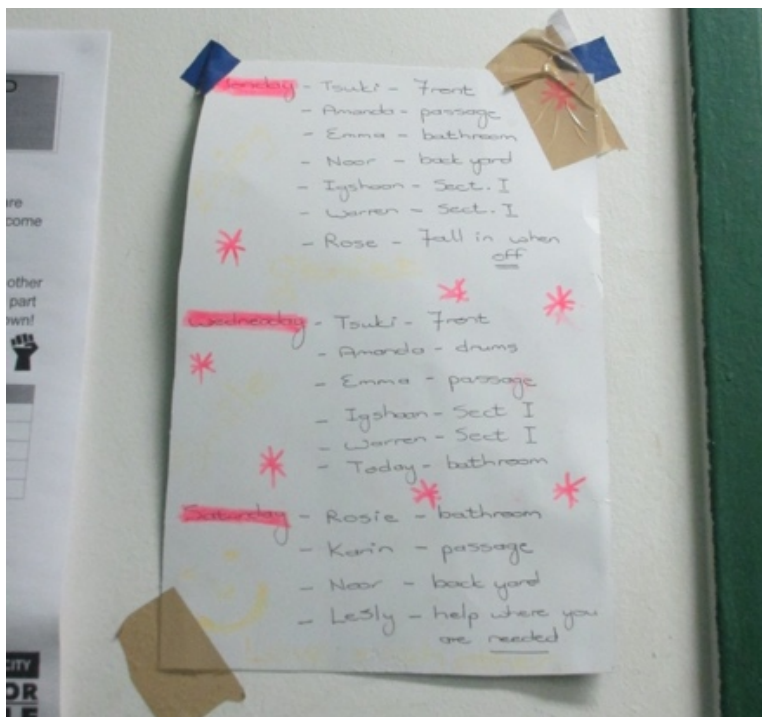 are
come
other
part
own!
CITY
OR
LE
Monday - Tsuki - Front
- Amanda - passage
- Emma - bathroom
- Noor - back yard
- Igshaan - Sect. I
- Warren - Sect. I
- Rose - Fall in when
off
Wednesday - Tsuki - Front
- Amanda - drums
- Emma - passage
- Igshaan - Sect I
- Warren - Sect I
- Today - bathroom
Saturday - Rosie - bathroom
- Karin - passage
- Noor - back yard
- Lesly - help where you
are needed